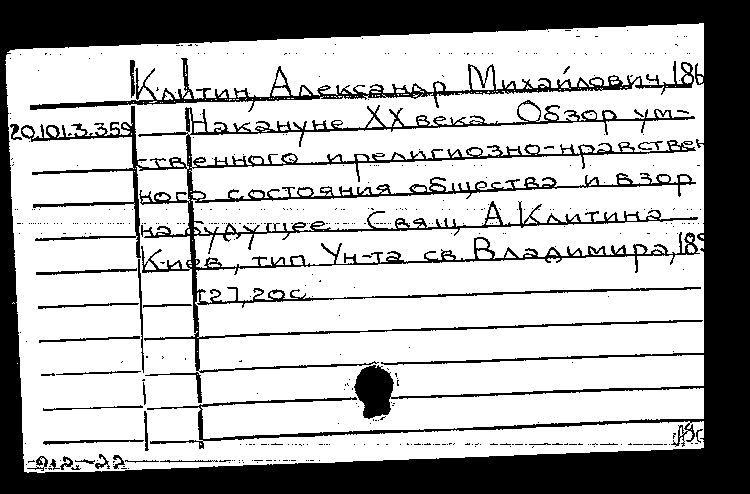 Клитин, Александр Михайлович, 186
20.101.3.359 Накануне XX века. Обзор ум-
ственного и религиозно-нравствен
ного состояния общества и взор
на будущее. Свящ. А. Клитина.—
Киев, тип. Ун-та св. Владимира, 189
127, 20 с.